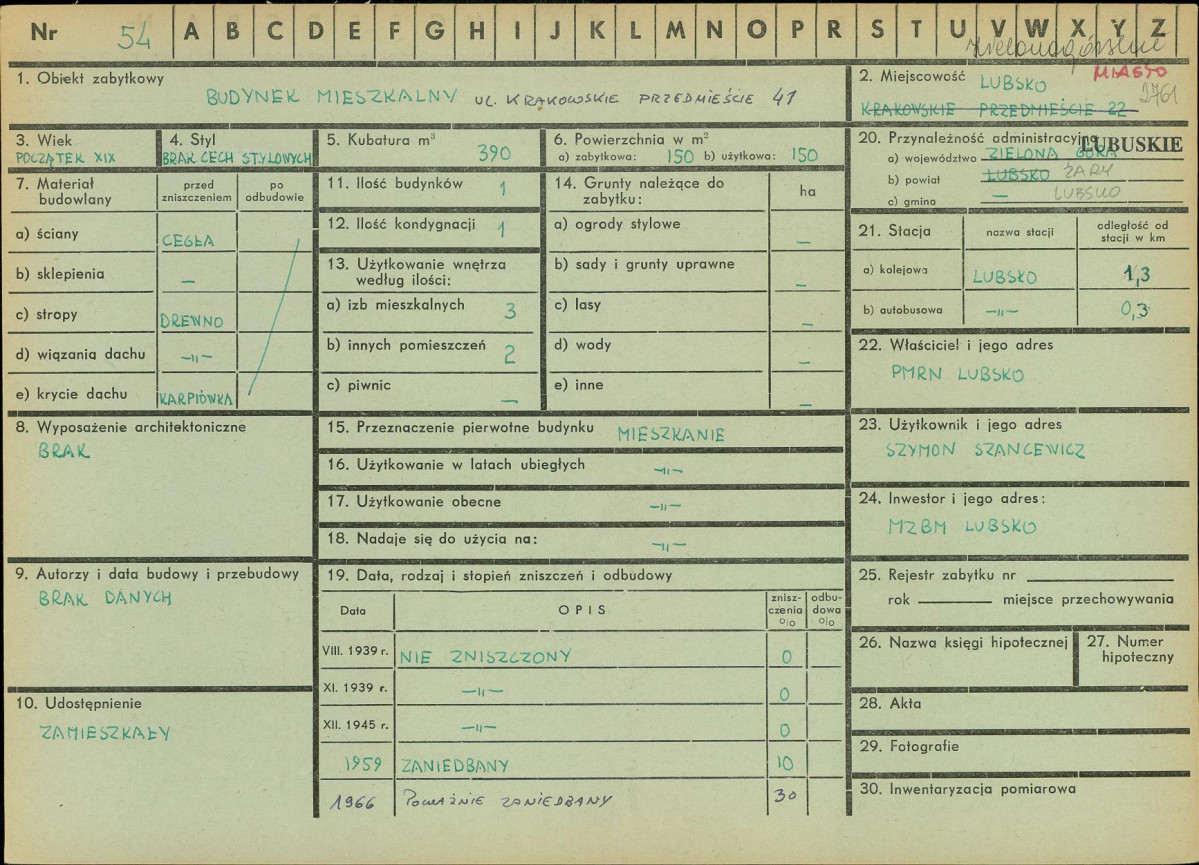 Nr 54 A B C D E F G H I J K L M N O P R S T U V W X Y Z
zielonogórskie
1. Obiekt zabytkowy
BUDYNEK MIESZKALNY UL. KRAKOWSKIE PRZEDMIEŚCIE 41
2. Miejscowość LUBSKO MIASTO
KRAKOWSKIE PRZEDMIEŚCIE 22 2761
3. Wiek
POCZĄTEK XIX
4. Styl
BRAK CECH STYLOWYCH
5. Kubatura m³
390
6. Powierzchnia w m²
a) zabytkowa: 150 b) użytkowa: 150
7. Materiał budowlany
przed zniszczeniem
po odbudowie
a) ściany CEGŁA
b) sklepienia —
c) stropy DREWNO
d) wiązania dachu —„—
e) krycie dachu KARPIÓWKA
8. Wyposażenie architektoniczne
BRAK
9. Autorzy i data budowy i przebudowy
BRAK DANYCH
10. Udostępnienie
ZAMIESZKAŁY
11. Ilość budynków 1
12. Ilość kondygnacji 1
13. Użytkowanie wnętrza
według ilości:
a) izb mieszkalnych 3
b) innych pomieszczeń 2
c) piwnic —
14. Grunty należące do
zabytku:
ha
a) ogrody stylowe —
b) sady i grunty uprawne —
c) lasy —
d) wody —
e) inne —
15. Przeznaczenie pierwotne budynku MIESZKANIE
16. Użytkowanie w latach ubiegłych —„—
17. Użytkowanie obecne —„—
18. Nadaje się do użycia na: —„—
19. Data, rodzaj i stopień zniszczeń i odbudowy
Data OPIS znisz-
czenia
o/o odbu-
dowa
o/o
VIII. 1939 r. NIE ZNISZCZONY 0
XI. 1939 r. —„— 0
XII. 1945 r. —„— 0
1959 ZANIEDBANY 10
1966 POWAŻNIE ZANIEDBANY 30
20. Przynależność administracyjna
LUBUSKIE
a) województwo ZIELONA GÓRA
b) powiat LUBSKO ŻARY
c) gmina — LUBSKO
21. Stacja
nazwa stacji
odległość od
stacji w km
a) kolejowa LUBSKO 1,3
b) autobusowa —„— 0,3
22. Właściciel i jego adres
PMRN LUBSKO
23. Użytkownik i jego adres
SZYMON SZANCEWICZ
24. Inwestor i jego adres:
MZBM LUBSKO
25. Rejestr zabytku nr
rok miejsce przechowywania
26. Nazwa księgi hipotecznej
27. Numer
hipoteczny
28. Akta
29. Fotografie
30. Inwentaryzacja pomiarowa